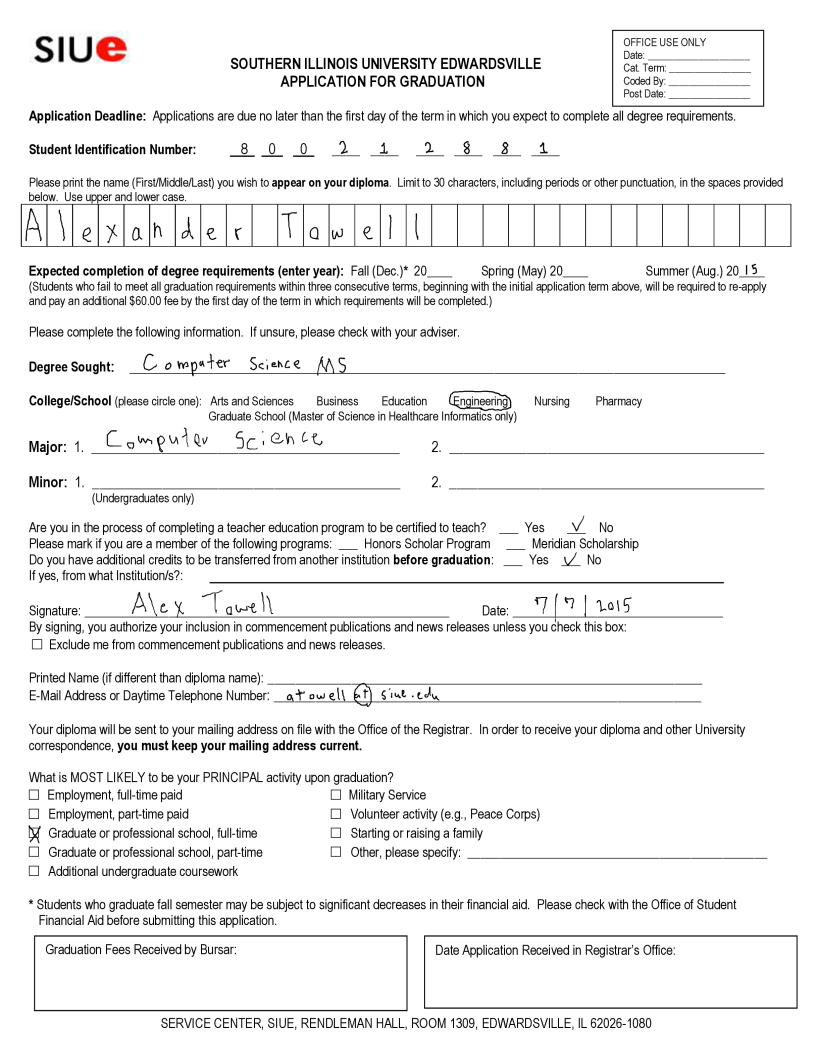 SIUe
SOUTHERN ILLINOIS UNIVERSITY EDWARDSVILLE
APPLICATION FOR GRADUATION
OFFICE USE ONLY
Date: ___________________
Cat. Term: ________________
Coded By: ________________
Post Date: ________________
Application Deadline: Applications are due no later than the first day of the term in which you expect to complete all degree requirements.
Student Identification Number: 8 0 0 2 1 2 8 8 1
Please print the name (First/Middle/Last) you wish to appear on your diploma. Limit to 30 characters, including periods or other punctuation, in the spaces provided
below. Use upper and lower case.
Alexander Towell
Expected completion of degree requirements (enter year): Fall (Dec.)* 20____ Spring (May) 20____ Summer (Aug.) 2015
(Students who fail to meet all graduation requirements within three consecutive terms, beginning with the initial application term above, will be required to re-apply
and pay an additional $60.00 fee by the first day of the term in which requirements will be completed.)
Please complete the following information. If unsure, please check with your adviser.
Degree Sought: Computer Science MS
College/School (please circle one): Arts and Sciences Business Education Engineering Nursing Pharmacy
Graduate School (Master of Science in Healthcare Informatics only)
Major: 1. Computer Science 2. ___
Minor: 1. ___ 2. ___
(Undergraduates only)
Are you in the process of completing a teacher education program to be certified to teach? ___ Yes ✓ No
Please mark if you are a member of the following programs: ___ Honors Scholar Program ___ Meridian Scholarship
Do you have additional credits to be transferred from another institution before graduation: ___ Yes ✓ No
If yes, from what Institution/s?: ___
Signature: Alex Towell Date: 7/7/2015
By signing, you authorize your inclusion in commencement publications and news releases unless you check this box:
☐ Exclude me from commencement publications and news releases.
Printed Name (if different than diploma name): ___
E-Mail Address or Daytime Telephone Number: atowell at siue.edu
Your diploma will be sent to your mailing address on file with the Office of the Registrar. In order to receive your diploma and other University
correspondence, you must keep your mailing address current.
What is MOST LIKELY to be your PRINCIPAL activity upon graduation?
☐ Employment, full-time paid ☐ Military Service
☐ Employment, part-time paid ☐ Volunteer activity (e.g., Peace Corps)
☒ Graduate or professional school, full-time ☐ Starting or raising a family
☐ Graduate or professional school, part-time ☐ Other, please specify: ___
☐ Additional undergraduate coursework
* Students who graduate fall semester may be subject to significant decreases in their financial aid. Please check with the Office of Student
Financial Aid before submitting this application.
Graduation Fees Received by Bursar:
Date Application Received in Registrar's Office:
SERVICE CENTER, SIUE, RENDLEMAN HALL, ROOM 1309, EDWARDSVILLE, IL 62026-1080